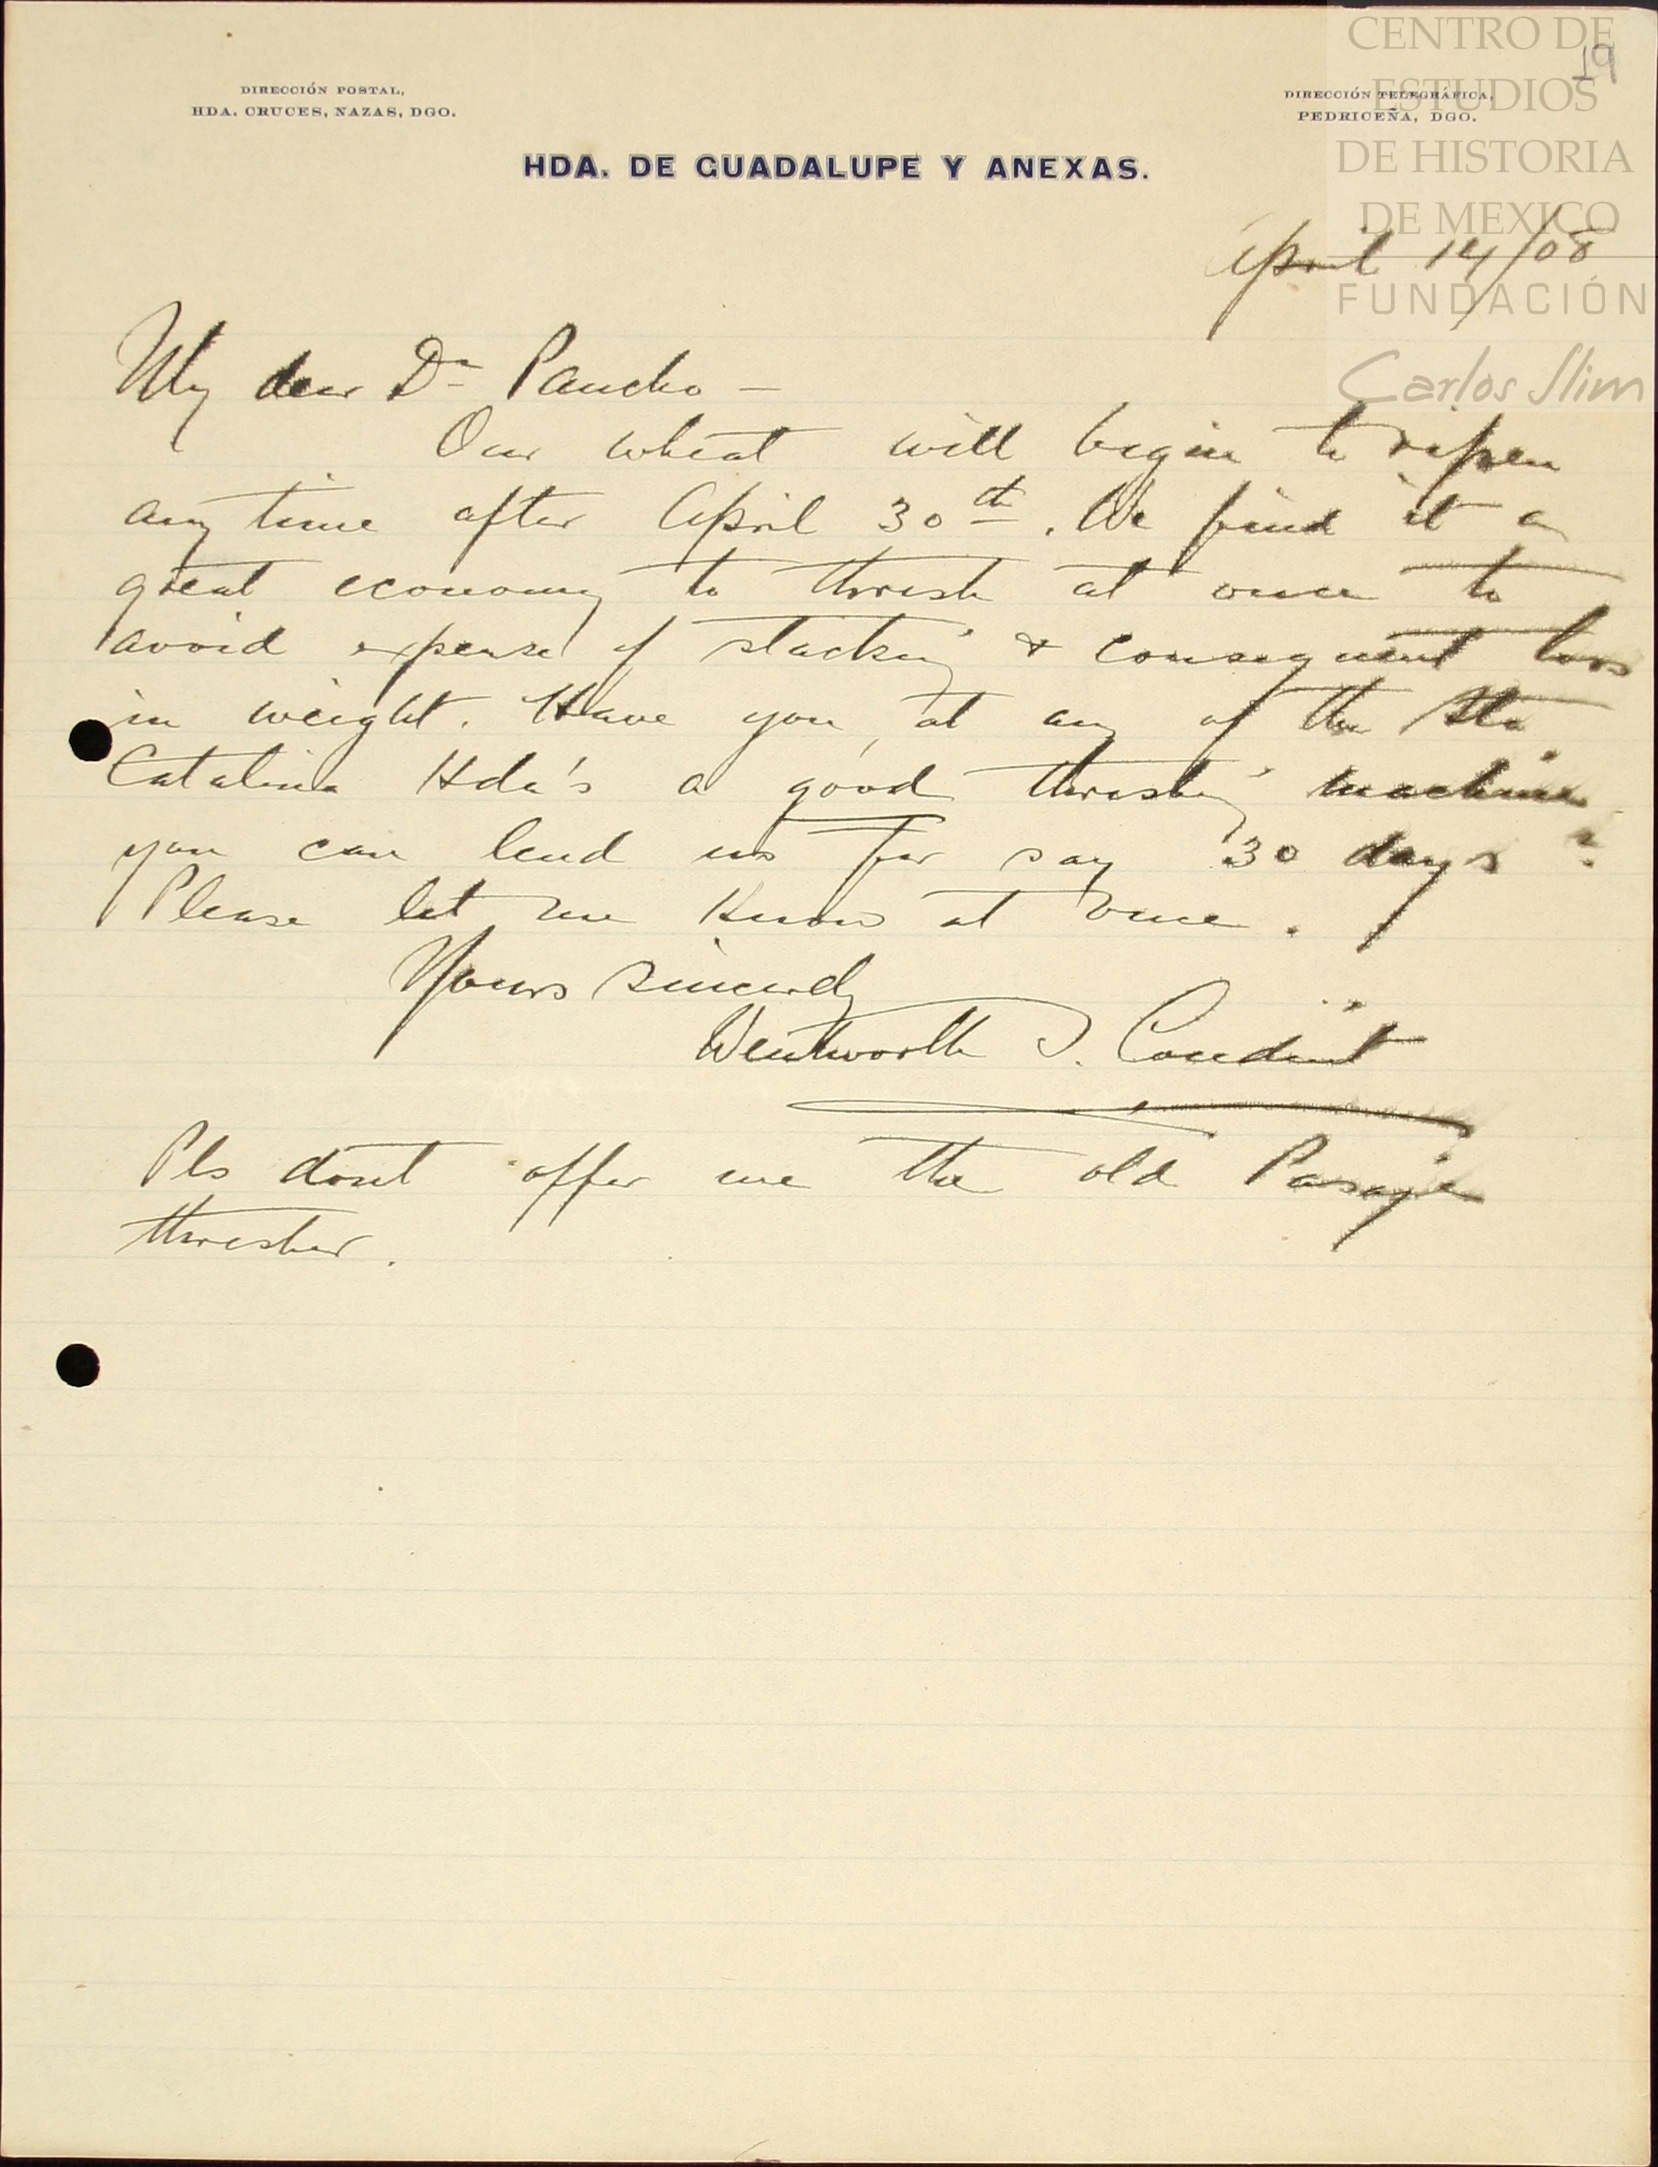 CENTRO DE
ESTUDIOS
DE HISTORIA
DE MEXICO
FUNDACIÓN
Carlos Slim
19
DIRECCIÓN POSTAL,
HDA. CRUCES, NAZAS, DGO.
DIRECCIÓN TELEGRÁFICA,
PEDRICEÑA, DGO.
HDA. DE GUADALUPE Y ANEXAS.
April 14/08
My dear Dn Pancho —
Our wheat will begin to ripen
any time after April 30th. We find it a
great economy to thresh at once to
avoid expense of stacking & consequent loss
in weight. Have you, at any of the Sta
Catalina Hda's a good threshing machine
you can lend us for say 30 days?
Please let me know at once.
Yours sincerely
Wentworth S. Conduit
Pls dont offer me the old Pasaje
thresher.